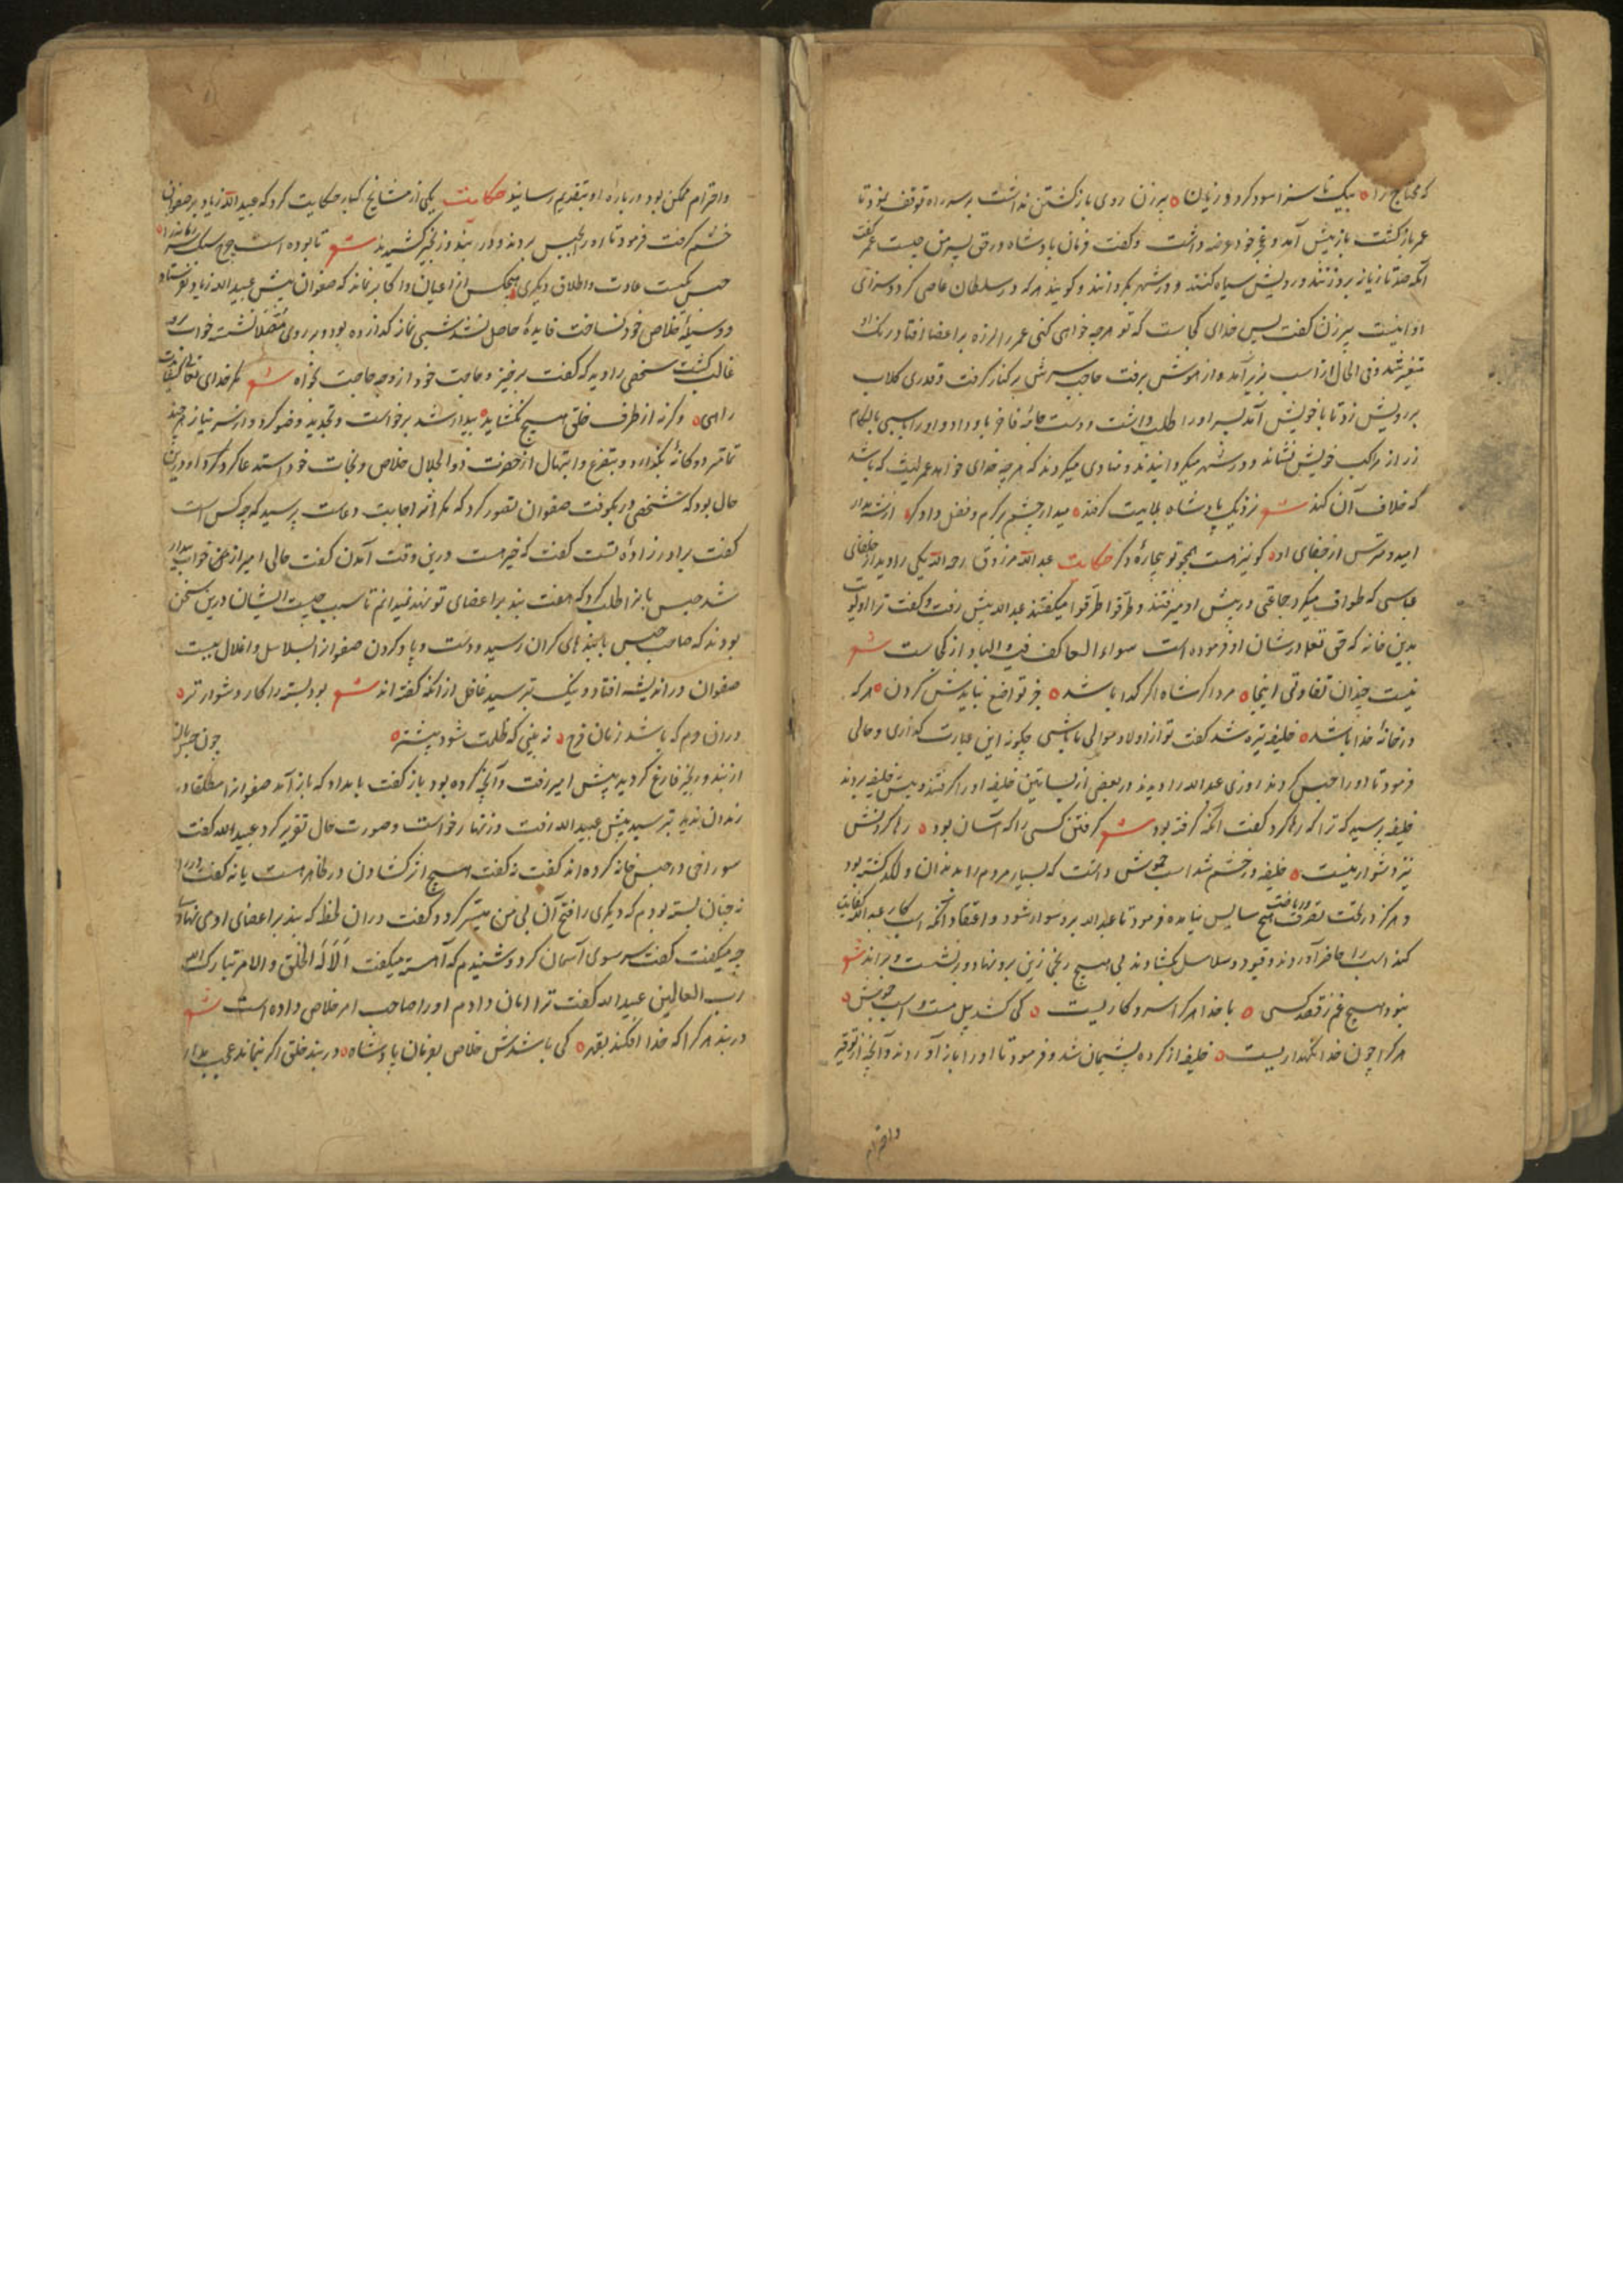 که محتاج را ه بیک تا سزا سود کرد و زیان ه پیرزن روی بازگشتن نداشت بر سر راه توقف نمود تا
عمر باز گشت باز پیش آمد و غم خود عرضه داشت و گفت فرمان پادشاه در حق پسر من چیست عمر گفت
آنکه صد تازیانه بر وزنند و رویش سیاه کنند و در شهر بگردانند و گویند هر که در سلطان عاصی گردد سزای
او اینست پیرزن گفت پس خدای کجاست که تو هر چه خواهی کنی عمر را لرزه بر اعضا افتاد و رنگ او
متغیر شد و فی الحال از اسب بزیر آمد و از هوش برفت حاجب سرش بر کنار گرفت و قدری گلاب
بر رویش زد تا با خویش آمد پسر او را طلب داشت و دست جامهٔ فاخر باو داد و او را بر اسپی بالگام
زر از مراکب خویش نشاند و در شهر میگردانیدند و منادی میکردند که هر چه خدای خواهد عمر لیث که باشد
که خلاف آن کند شعر نزدیک پادشاه بلابیت گرفته میدار چشم بر کرم و فضل دادگر ه
امید و مترس از جفای او ه کو نیز هست همچو تو بیچارهٔ دگر حکایت عبدالله مرزوق رحمه الله یکی را دید از خلفای
عباسی که طواف میکرد جماعتی در پیش او میرفتند و طرقوا طرقوا میگفتند عبدالله پیش رفت و گفت ترا اولویت
بدین خانه که حق تعالی در شان او فرموده است سواء العاکف فیه والباد از کجاست شعر
نیست چندان تفاوتی اینجا ه مرد اگر شاه اگر گدا باشد ه جز تواضع نبایدش کردن ه هر که
در خانهٔ خدا باشد ه خلیفه تیره شد گفت تو از اولاد موالی ما باشی چگونه این عبارت گذاری و حالی
فرمود تا او را حبس کردند روزی عبدالله را دیدند در بعضی از بساتین خلیفه او را گرفتند و پیش خلیفه بردند
خلیفه پرسید که ترا که رها کرد گفت آنکه گرفته بود شعر گرفتن کسی را که آسان بود ه رها کردنش
نیز دشوار نیست ه خلیفه در خشم شد اسب حموش داشت که بسیار مردم را بدندان و لگد کشته بود
و هرگز در تحت تصرف هیچ سایس نیامده فرمود تا عبدالله بر و سوار شود و اعتقاد آنکه اسب کار عبدالله کفایت
کند اسب را حاضر آوردند و قیود و سلاسل بگشادند بی هیچ رنجی زین برو نهاد و برنشست و براند شعر
نبود هیچ غم ز قصد کسی ه با خدا هر که را سر و کاریست ه کی کشد پیل مست و اسب حموش ه
هر کرا چون خدا نگهداریست ه خلیفه از کرده پشیمان شد و فرمود تا او را باز آوردند و آنچه از توقیر
واحترام
واحترام ممکن بود درباره او بتقدیم رسانید حکایت یکی از مشایخ کبار حکایت کرد که عبیدالله زیاد بر صفوان
خشم گرفت فرمود تا او را بحبس بردند و در بند و زنجیر کشیدند شعر تا بوده است چرخ سبک سیر
حبس یکیست عادت و اطلاق دیگری ه هیچکس از اعیان و اکابر نماند که صفوان پیش عبیدالله زیاد نفرستاد
و وسیلهٔ خلاص خود نساخت فایدهٔ حاصل نشد شبی نماز گذارده بود و بر روی مصلا نشسته خواب برو
غالب گشت شخصی را دید که گفت برخیز و حاجت خود از وجه حاجت بخواه شعر
راهی ه وگرنه از طرف خلق هیچ نگشاید ه بیدار شد برخاست و تجدید وضو کرد و از سر نیاز هر چند
تمامتر دوگانهٔ بگذارد و بتضرع و ابتهال از حضرت ذوالجلال خلاص و نجات خود استدعا کرد و درین
حال بود که شخصی در بکوفت صفوان تصور کرد که مگر اثر اجابت دعاست پرسید که چه کس است
گفت برادرزادهٔ تست گفت که خیر هست درین وقت آمدن گفت حالی امیر از عین خواب بیدار
شد حبس بانرا طلب کرد که هفت بند بر اعضای تو نهند نمیدانم تا سبب چیست ایشان درین سخن
بودند که صاحب حبس با بندهای گران رسید و دست و پا و گردن صفوانرا بسلاسل و اغلال ببست
صفوان در اندیشه افتاد و نیک بترسید غافل از آنکه گفته اند شعر بود بسته را کار دشوارتر ه
در آن دم که باشد زمان فرج ه نه بینی که ظلمت شود بیشتر ه چون حبس بان
از بند و زنجیر فارغ گردید پیش امیر رفت و آنچه کرده بود باز گفت بامداد که باز آمد صفوانرا مطلقا در
زندان ندید بترسید پیش عبیدالله رفت و زنهار خواست و صورت حال تقریر کرد عبیدالله گفت
سوراخی در حبس خانه کرده اند گفت نه گفت هیچ اثر گشادن در ظاهر هست یا نه گفت
نه چنان بسته بودم که دیگری را فتح آن بی من میسر گردد گفت در ان لحظه که بند بر اعضای او می نهادی
چه میگفت گفت سر سوی آسمان کرد و شنیدم که آهسته میگفت الا له الخلق والامر تبارک الله
رب العالمین عبیدالله گفت ترا امان دادم او را صاحب امر خلاص داده است شعر
در بند هر کرا که خدا افکند بقهر ه کی باشدش خلاص بفرمان پادشاه ه در بند خلق اگر بماند عجب مدار